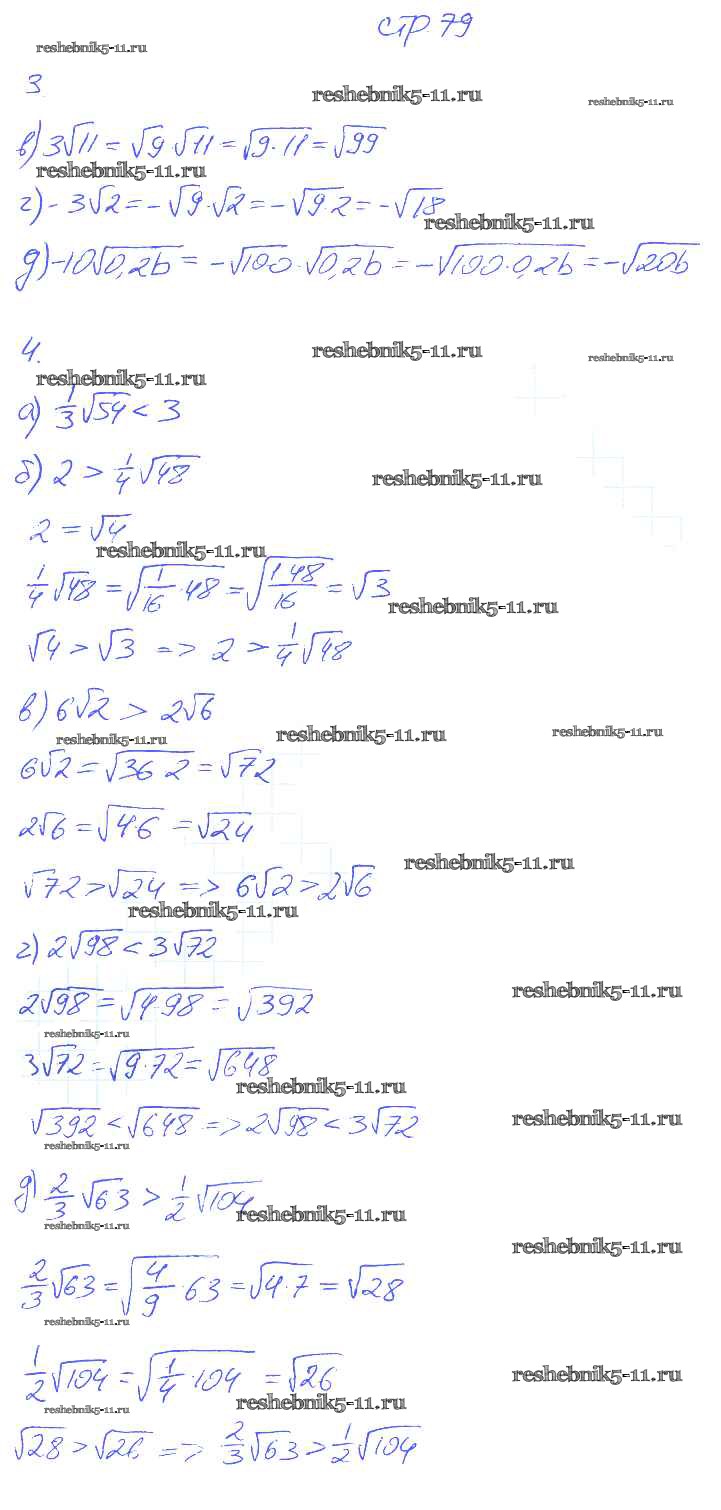 стр. 79
reshebnik5-11.ru
3
reshebnik5-11.ru
reshebnik5-11.ru
в) 3√11 = √9·√11 = √9·11 = √99
reshebnik5-11.ru
г) -3√2 = -√9·√2 = -√9·2 = -√18
reshebnik5-11.ru
д) -10√0,2b = -√100·√0,2b = -√100·0,2b = -√20b
4.
reshebnik5-11.ru
reshebnik5-11.ru
reshebnik5-11.ru
а) 1/3 √54 < 3
б) 2 > 1/4 √48
reshebnik5-11.ru
2 = √4
reshebnik5-11.ru
1/4 √48 = √1/16·48 = √1 48/16 = √3
reshebnik5-11.ru
√4 > √3 => 2 > 1/4 √48
в) 6√2 > 2√6
reshebnik5-11.ru
reshebnik5-11.ru
reshebnik5-11.ru
6√2 = √36 2 = √72
2√6 = √4·6 = √24
reshebnik5-11.ru
√72 > √24 => 6√2 > 2√6
reshebnik5-11.ru
г) 2√98 < 3√72
2√98 = √4·98 = √392
reshebnik5-11.ru
reshebnik5-11.ru
3√72 = √9·72 = √648
reshebnik5-11.ru
√392 < √648 => 2√98 < 3√72
reshebnik5-11.ru
reshebnik5-11.ru
д) 2/3 √63 > 1/2 √104
reshebnik5-11.ru
reshebnik5-11.ru
reshebnik5-11.ru
2/3 √63 = √4/9·63 = √4·7 = √28
reshebnik5-11.ru
1/2 √104 = √1/4·104 = √26
reshebnik5-11.ru
reshebnik5-11.ru
reshebnik5-11.ru
√28 > √26 => 2/3 √63 > 1/2 √104